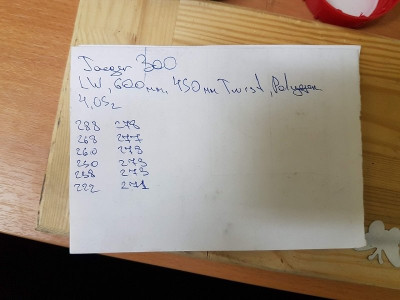 Jaeger 300
LW, 600mm, 450mm Twist, Polygon
4,05г
288 278
268 277
260 279
250 273
258 273
222 271